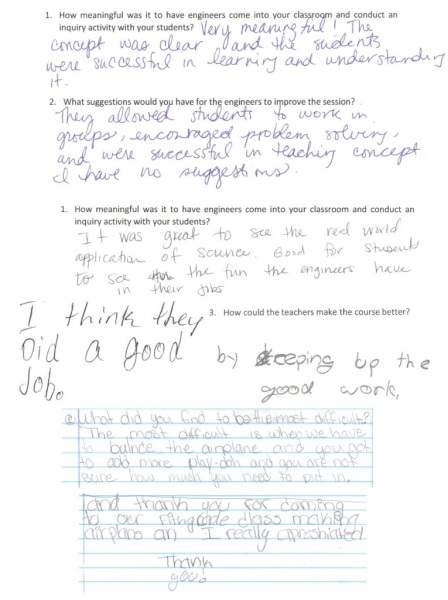 1. How meaningful was it to have engineers come into your classroom and conduct an
inquiry activity with your students? Very meaningful! The
concept was clear and the students
were successful in learning and understanding
it.
2. What suggestions would you have for the engineers to improve the session?
They allowed students to work in
groups, encouraged problem solving,
and were successful in teaching concept
I have no suggestions.
1. How meaningful was it to have engineers come into your classroom and conduct an
inquiry activity with your students?
It was great to see the real world
application of science. Good for students
to see the fun the engineers have
in their jobs
I think they
Did a good
Job.
3. How could the teachers make the course better?
by keeping up the
good work,
What did you find to be the most difficult?
The most difficult is when we have
to balnce the airplane and you got
to add more play-doh and you are not
sure how much you need to put in.
and thank you for coming
to our fifth grade class making
airplans an I really apreshiated
Thank
you.